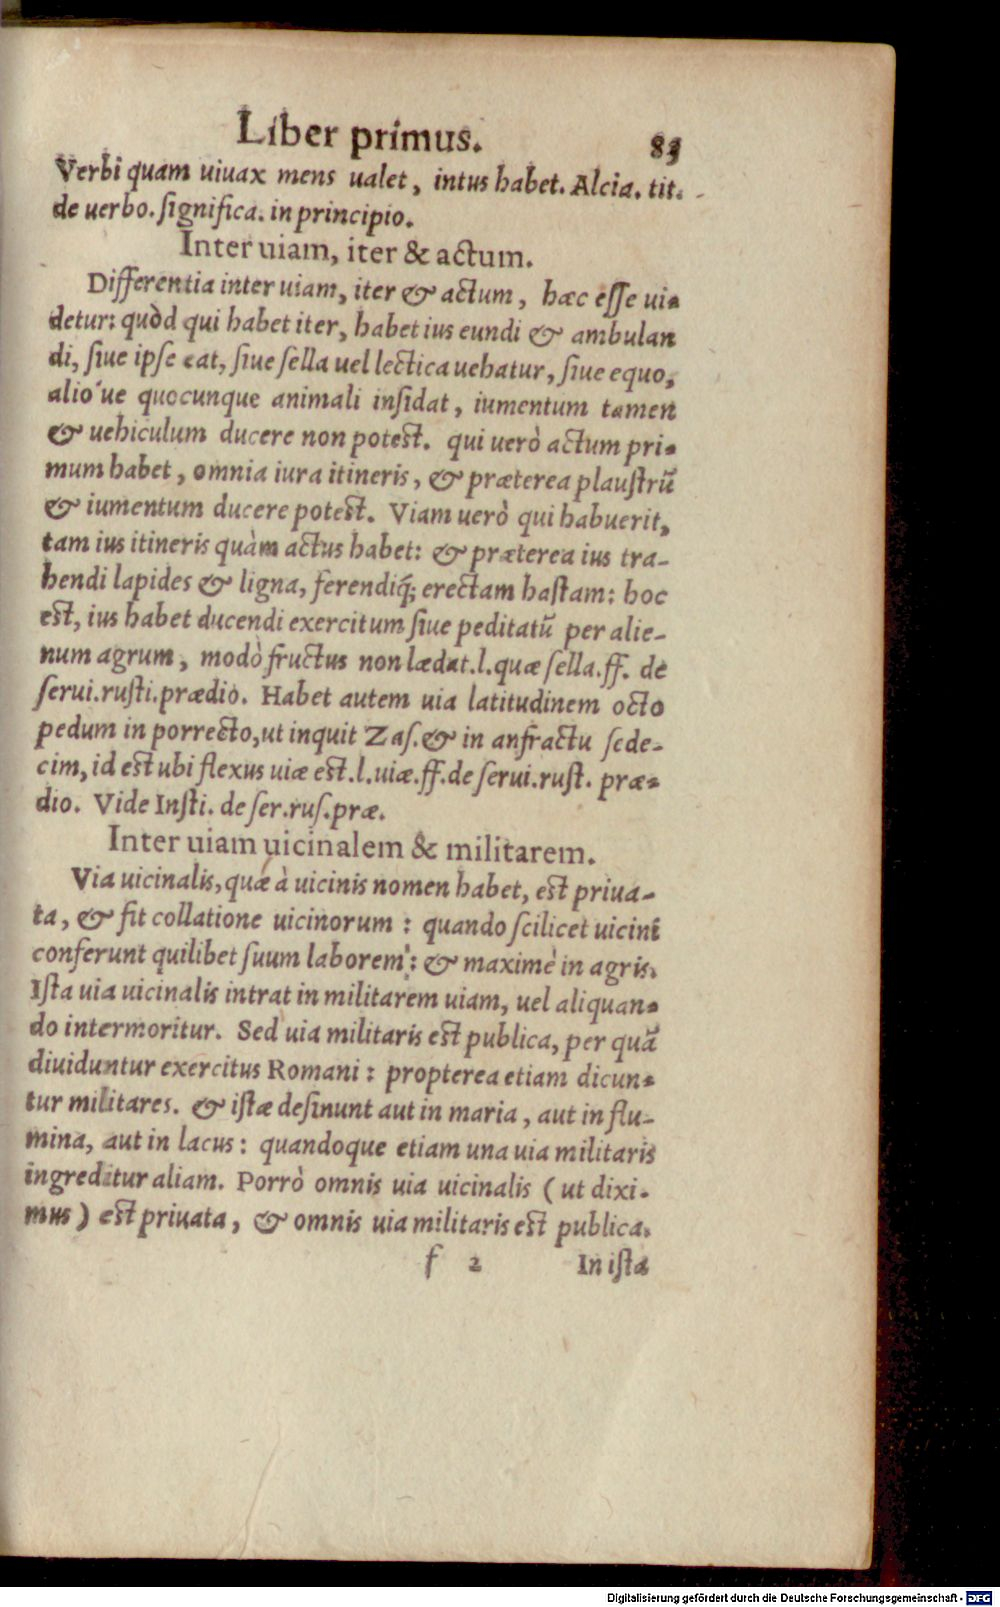 Liber primus. 83
Verbi quam uiuax mens ualet, intus habet. Alcia. tit.
de uerbo. ſignifica. in principio.
Inter uiam, iter & actum.
Differentia inter uiam, iter & actum, hæc eſſe ui-
detur: quòd qui habet iter, habet ius eundi & ambulan
di, ſiue ipſe eat, ſiue ſella uel lectica uehatur, ſiue equo,
alio´ue quocunque animali inſidat, iumentum tamen
& uehiculum ducere non potest. qui uerò actum pri-
mum habet, omnia iura itineris, & præterea plauſtrū
& iumentum ducere potest. Viam uerò qui habuerit,
tam ius itineris quàm actus habet: & præterea ius tra-
hendi lapides & ligna, ferendiq́; erectam haſtam: hoc
est, ius habet ducendi exercitum ſiue peditatū per alie-
num agrum, modò fructus non lædat.l.quæ ſella.ff. de
ſerui.ruſti.prædio. Habet autem uia latitudinem octo
pedum in porrecto, ut inquit Zaſ. & in anfractu ſede-
cim, id est ubi flexus uiæ est.l.uiæ.ff.de ſerui.ruſt. præ-
dio. Vide Inſti. de ſer.ruſ.præ.
Inter uiam uicinalem & militarem.
Via uicinalis, quæ à uicinis nomen habet, est priua-
ta, & fit collatione uicinorum : quando ſcilicet uicini
conferunt quilibet ſuum laborem : & maximè in agris.
Iſta uia uicinalis intrat in militarem uiam, uel aliquan-
do intermoritur. Sed uia militaris est publica, per quā
diuiduntur exercitus Romani : propterea etiam dicun-
tur militares. & iſtæ deſinunt aut in maria, aut in flu-
mina, aut in lacus : quandoque etiam una uia militaris
ingreditur aliam. Porrò omnis uia uicinalis ( ut dixi-
mus ) est priuata, & omnis uia militaris est publica.
f 2 In iſta
Digitalisierung gefördert durch die Deutsche Forschungsgemeinschaft - DFG